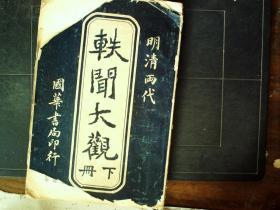 明清兩代
軼聞大觀
下冊
國華書局印行